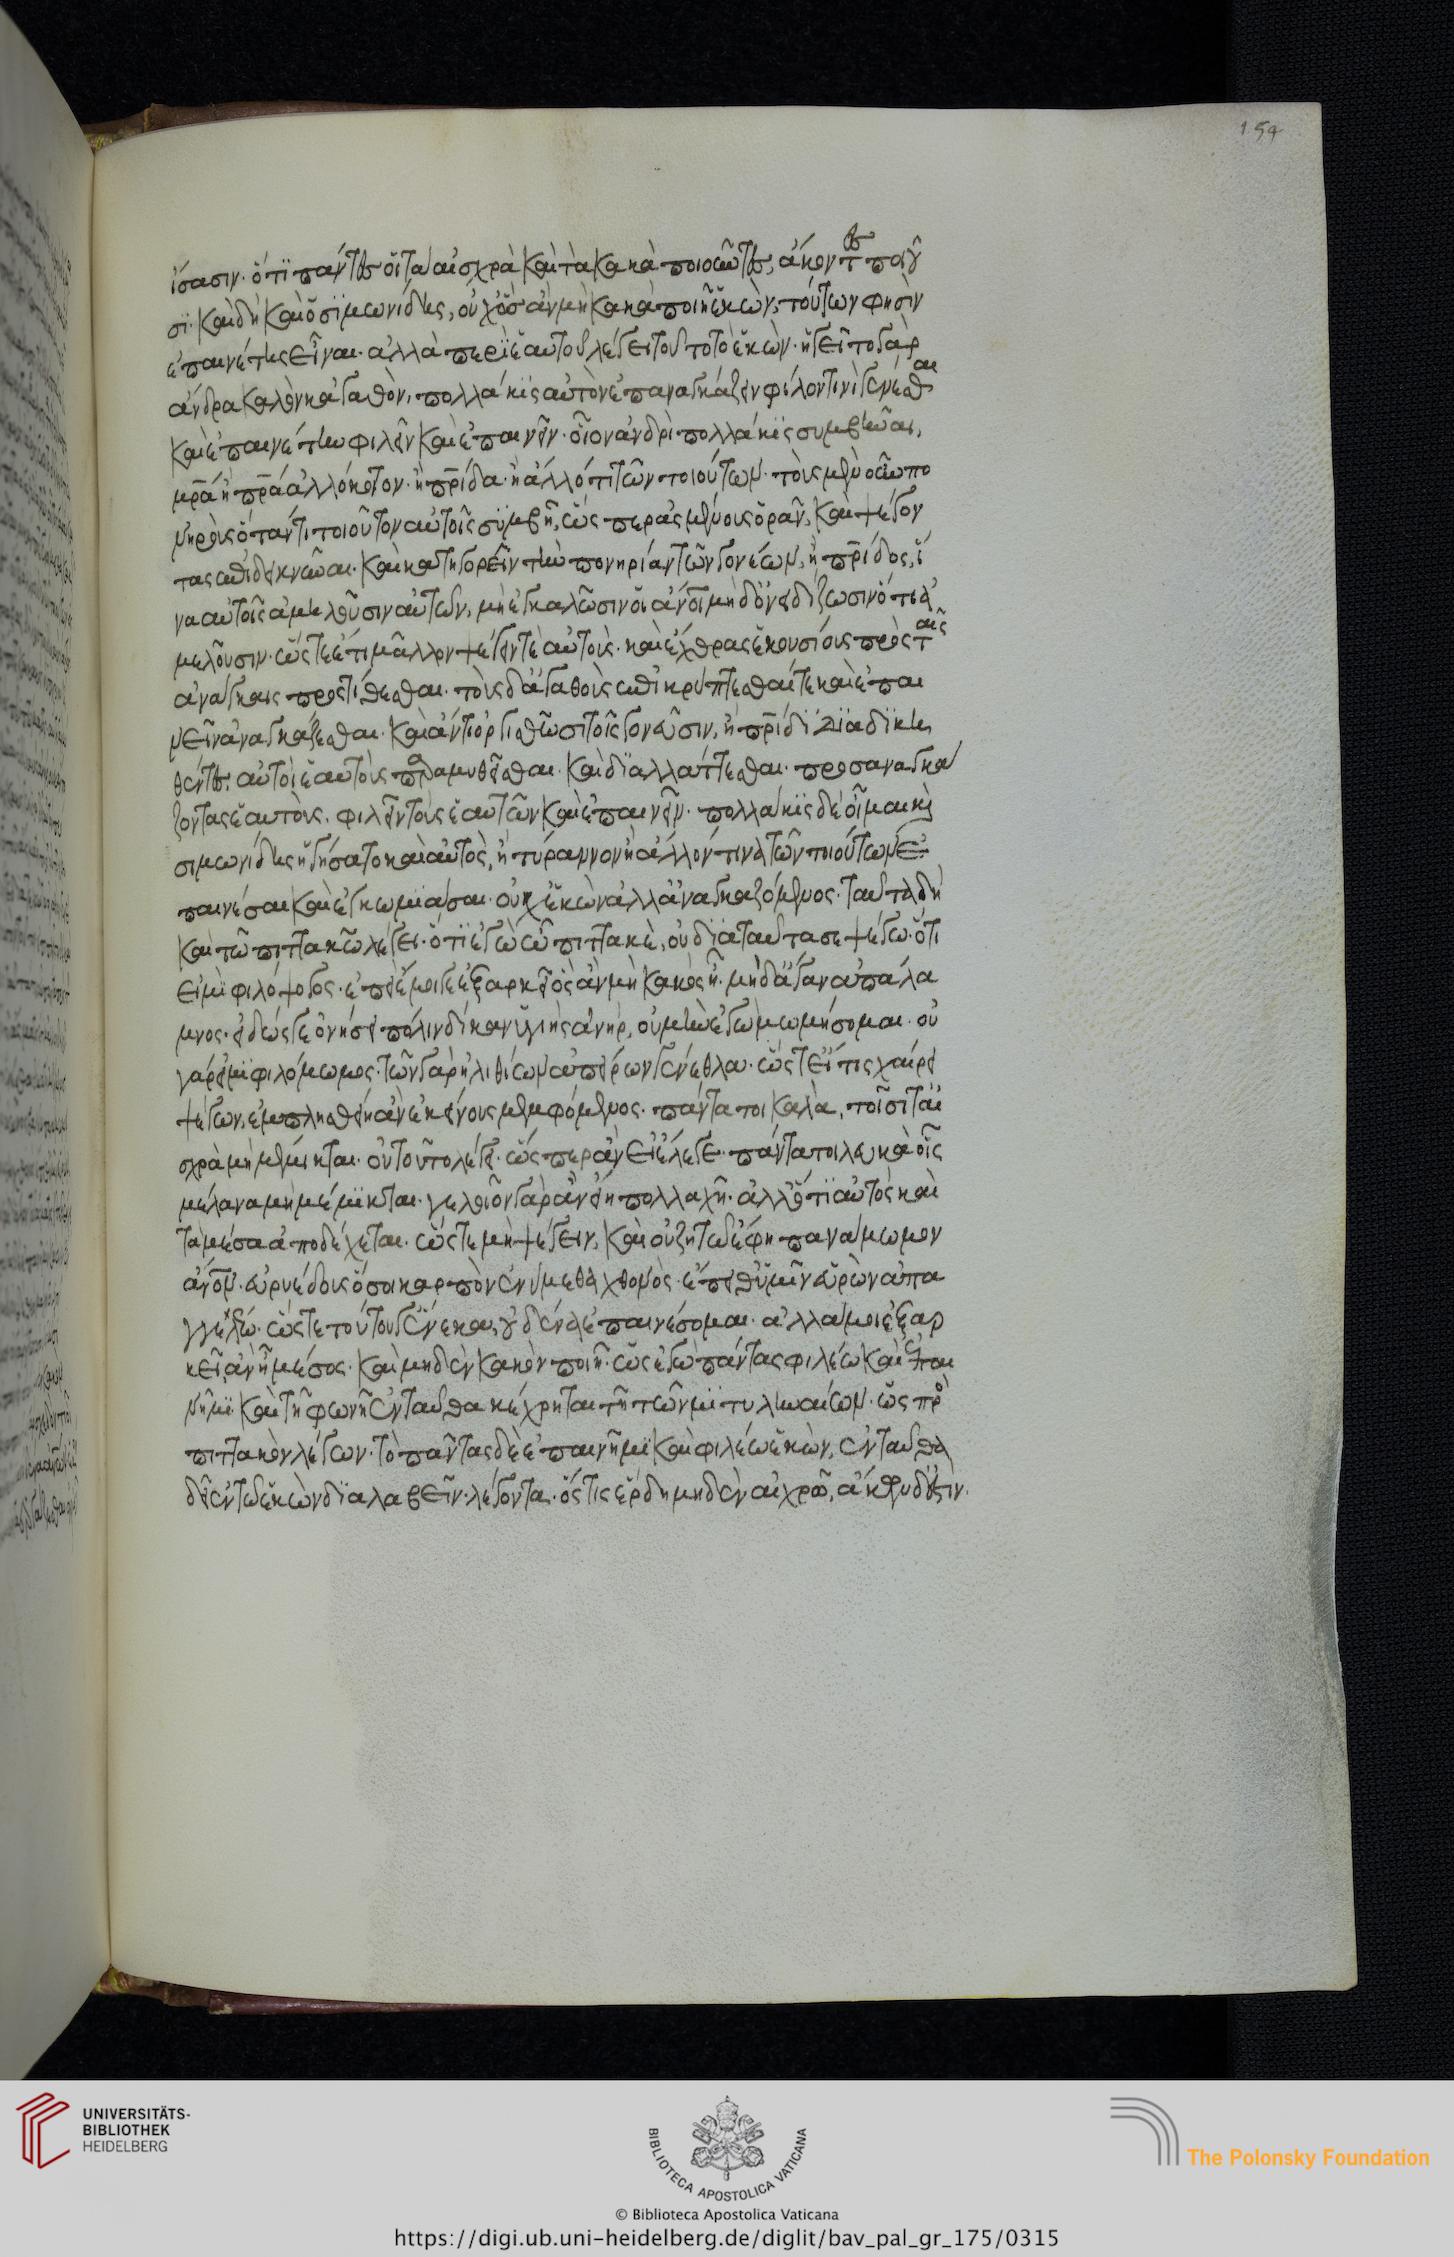 154
ἴσασιν· ὅτι πάντες οἱ τὰ αἰσχρὰ καὶ τὰ κακὰ ποιοῦντες, ἄκοντες ποιοῦ
σι· καὶ δὴ καὶ ὁ σιμωνίδης, οὐχ ὃς ἂν μὴ κακὰ ποιῆ ἑκὼν, τούτων φησὶν
ἐπαινέτης εἶναι· ἀλλὰ περὶ ἑαυτοῦ λέγει τοῦτο τὸ ἑκὼν· ἡγεῖτο γὰρ
ἄνδρα καλὸν κἀγαθὸν, πολλάκις αὐτὸν ἐπαναγκάζειν φίλον τινὶ γενέσθαι
καὶ ἐπαινέτην φιλεῖν καὶ ἐπαινεῖν· οἷον ἀνδρὶ πολλάκις συμβῆναι,
μρ̅α ἢ πρ̅α ἀλλόκοτον· ἢ πρ̅ίδα· ἢ ἄλλό τι τῶν τοιούτων· τοὺς μὲν οὖν πο
νηροὺς ὅταν τι τοιοῦτον αὐτοῖς συμβῆ, ὥσπερ ἀσμένους ὁρᾶν, καὶ ψέγον
τας ἐπιδεικνῦναι· καὶ κατηγορεῖν τὴν πονηρίαν τῶν γονέων, ἢ πρ̅ίδος, ἵ
να αὐτοῖς ἀμελοῦσιν αὐτῶν, μὴ ἐγκαλῶσιν οἱ ἄνοι μὴδ' ὀνειδίζωσιν ὅτι ἀ
μελοῦσιν· ὥστε ἔτι μᾶλλον ψέγειν τὲ αὐτοὺς· καὶ ἔχθρας ἑκουσίους πρὸς ταῖς
ἀνάγκαις προστίθεσθαι· τοὺς δ' ἀγαθοὺς ἐπικρύπτεσθαί τε καὶ ἐπαι
νεῖν ἀναγκάζεσθαι· καὶ ἄν τι ὀργισθῶσι τοῖς γονεῦσιν, ἢ πρ̅ίδι ἀδικη
θέντες, αὐτοὶ ἑαυτοὺς παραμυθεῖσθαι· καὶ διαλλάττεσθαι· προσαναγκά
ζοντας ἑαυτοὺς, φιλεῖν τοὺς ἑαυτῶν καὶ ἐπαινεῖν· πολλάκις δὲ οἶμαι καὶ
σιμωνίδης ἡγήσατο καὶ αὐτὸς, ἢ τύραννον ἢ ἄλλόν τινα τῶν τοιούτων ἐ
παινέσαι καὶ ἐγκωμιάσαι· οὐχ ἑκὼν ἀλλ' ἀναγκαζόμενος· ταῦτα δὴ
καὶ τῶ πιττακῶ λέγει· ὅτι ἐγὼ ὦ πιττακὲ, οὐ διὰ ταῦτά σε ψέγω· ὅτι
εἰμὶ φιλόψογος· ἐπεὶ ἔμοιγε ἐξαρκεῖ ὃς ἂν μὴ κακὸς ἦ· μὴδ' ἄγαν ἀπάλα
μνος· εἰδώς γε ὀνήσει πόλιν δίκαν ὑγιὴς ἀνὴρ, οὐ μὴν ἐγὼ μωμήσομαι· οὐ
γάρ εἰμι φιλόμωμος· τῶν γὰρ ἠλιθίων ἀπείρων γενέθλα· ὥστ' εἴ τις χαίρει
ψέγων, ἐμπλησθείη ἂν ἐκείνους μεμφόμενος· πάντα τοι καλὰ, τοῖσι τ' αἰ
σχρὰ μὴ μέμικται· οὐ τοῦτο λέγει· ὥσπερ ἂν εἰ ἔλεγε· πάντα τοι λευκὰ οἷς
μέλανα μὴ μέμικται· γελοῖον γὰρ ἂν εἴη πολλαχῆ· ἀλλ' ὅτι αὐτὸς καὶ
τὰ μέσα ἀποδέχεται· ὥστε μὴ ψέγειν, καὶ οὐ ζητῶ ἔφη πανάμωμον
ἄνον· εὐρυέδους ὅσοι καρπὸν αἰνύμεθα χθονὸς· ἐπεὶ θ' ὑμῖν εὑρὼν ἀπα
γγελέω· ὥστε τούτου γ' ἕνεκα, οὐδένα ἐπαινέσομαι· ἀλλά μοι ἐξαρ
κεῖ ἂν ἦ μέσος· καὶ μηδὲν κακὸν ποιῆ· ὡς ἐγὼ πάντας φιλέω καὶ ἐπαι
νημι· καὶ τῆ φωνῆ ἐνταῦθα κέχρηται τῆ τῶν μιτυληναίων· ὡς πρὸ
πιττακὸν λέγων· τὸ πάντας δὲ ἐπαινημι καὶ φιλέω ἑκὼν, ἐνταῦθα
δεῖ ἐν τῶ ἑκὼν διαλαβεῖν· λέγοντα· ὅστις ἔρδη μηδὲν αἰσχρὸν, ἄκων δ' ἔστιν·
UNIVERSITÄTS-
BIBLIOTHEK
HEIDELBERG
BIBLIOTECA APOSTOLICA VATICANA
The Polonsky Foundation
© Biblioteca Apostolica Vaticana
https://digi.ub.uni-heidelberg.de/diglit/bav_pal_gr_175/0315